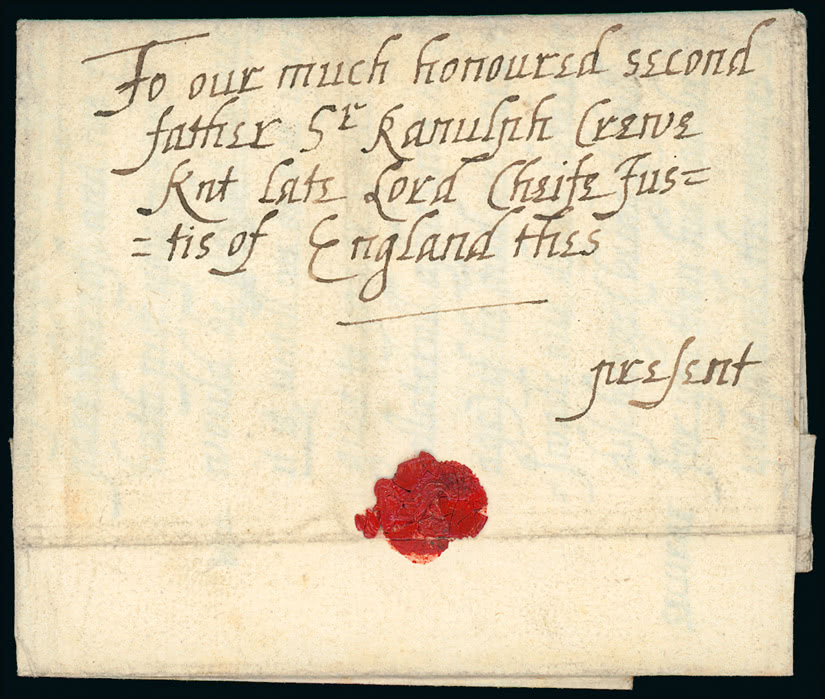 To our much honoured second
father Sr Ranulph Crewe
Knt late Lord Cheife Jus=
=tis of England thes
present